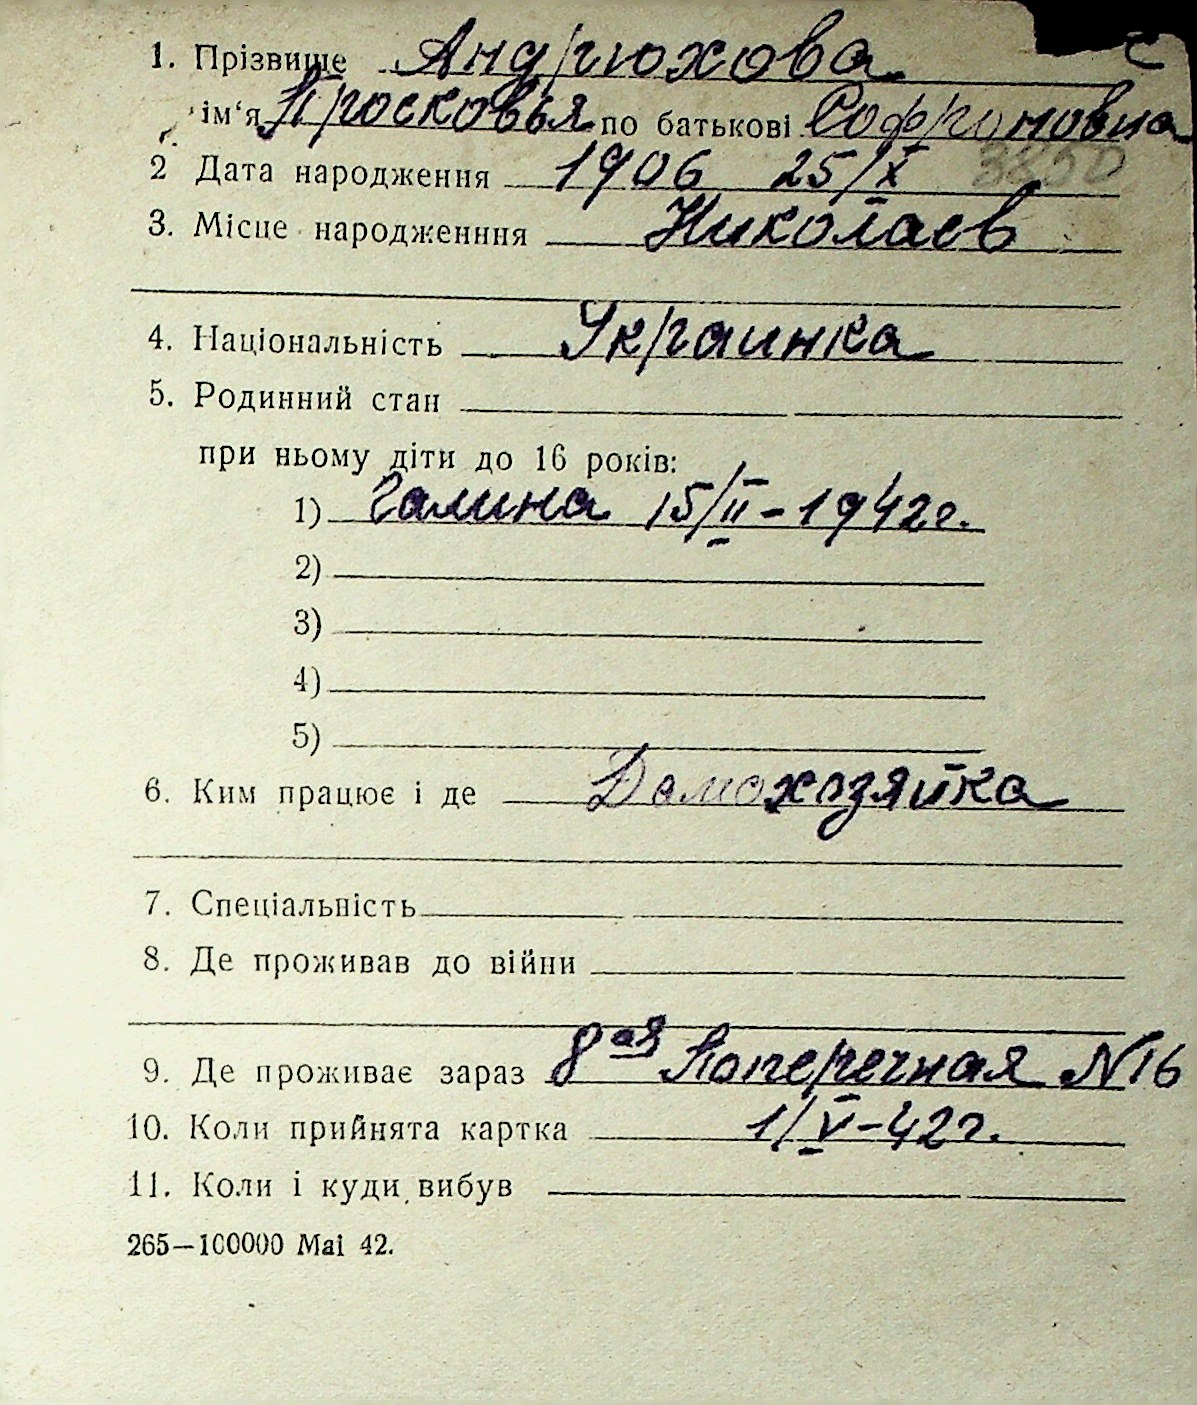 1. Прізвище Андрюхова
ім'я Просковья по батькові Софроновна
2 Дата народження 1906 25/X 3850
3. Місце народженння Николаев
4. Національність Украинка
5. Родинний стан
при ньому діти до 16 років:
1) Галина 15/II-1942г.
2)
3)
4)
5)
6. Ким працює і де Домохозяйка
7. Спеціальність
8. Де проживав до війни
9. Де проживає зараз 8ая Поперечная N16
10. Коли прийнята картка 1/V-42г.
11. Коли і куди вибув
265—100000 Mai 42.